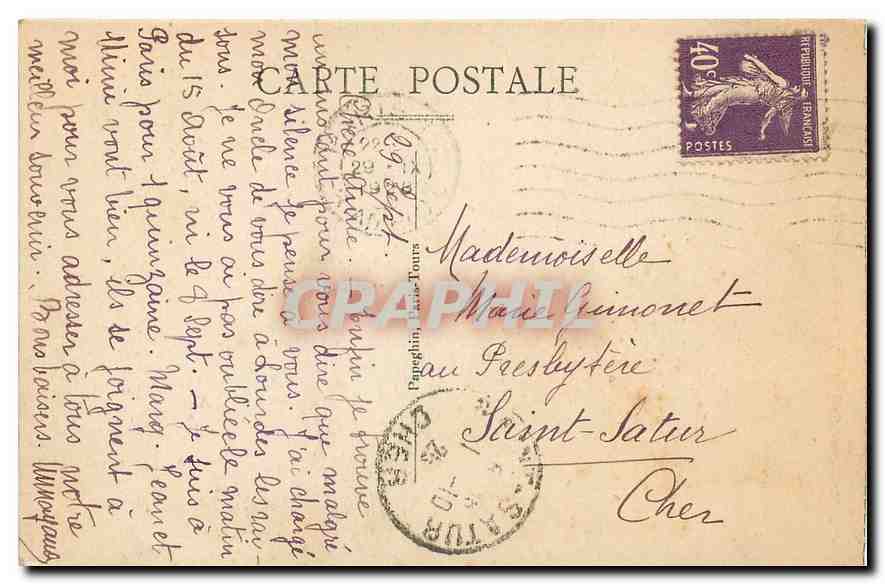 CARTE POSTALE
40c
REPUBLIQUE FRANÇAISE
POSTES
29 Sept.
Chère Amie. - Enfin je trouve
un instant pour vous dire que malgré
mon silence je pense à vous. J'ai chargé
mon Oncle de vous dire à Lourdes les rai-
sons. Je ne vous ai pas oubliée le matin
du 15 Août, ni le 8 Sept. - Je suis à
Paris pour 1 quinzaine. Marg. Jean et
Mimi vont bien, ils se joignent à
moi pour vous adresser à tous notre
meilleur souvenir. Bons baisers.
Papeghin, Paris-Tours
Mademoiselle
Marie Guimonet
au Presbytère
Saint-Satur
Cher
SATUR
CHER
CRAPHIL